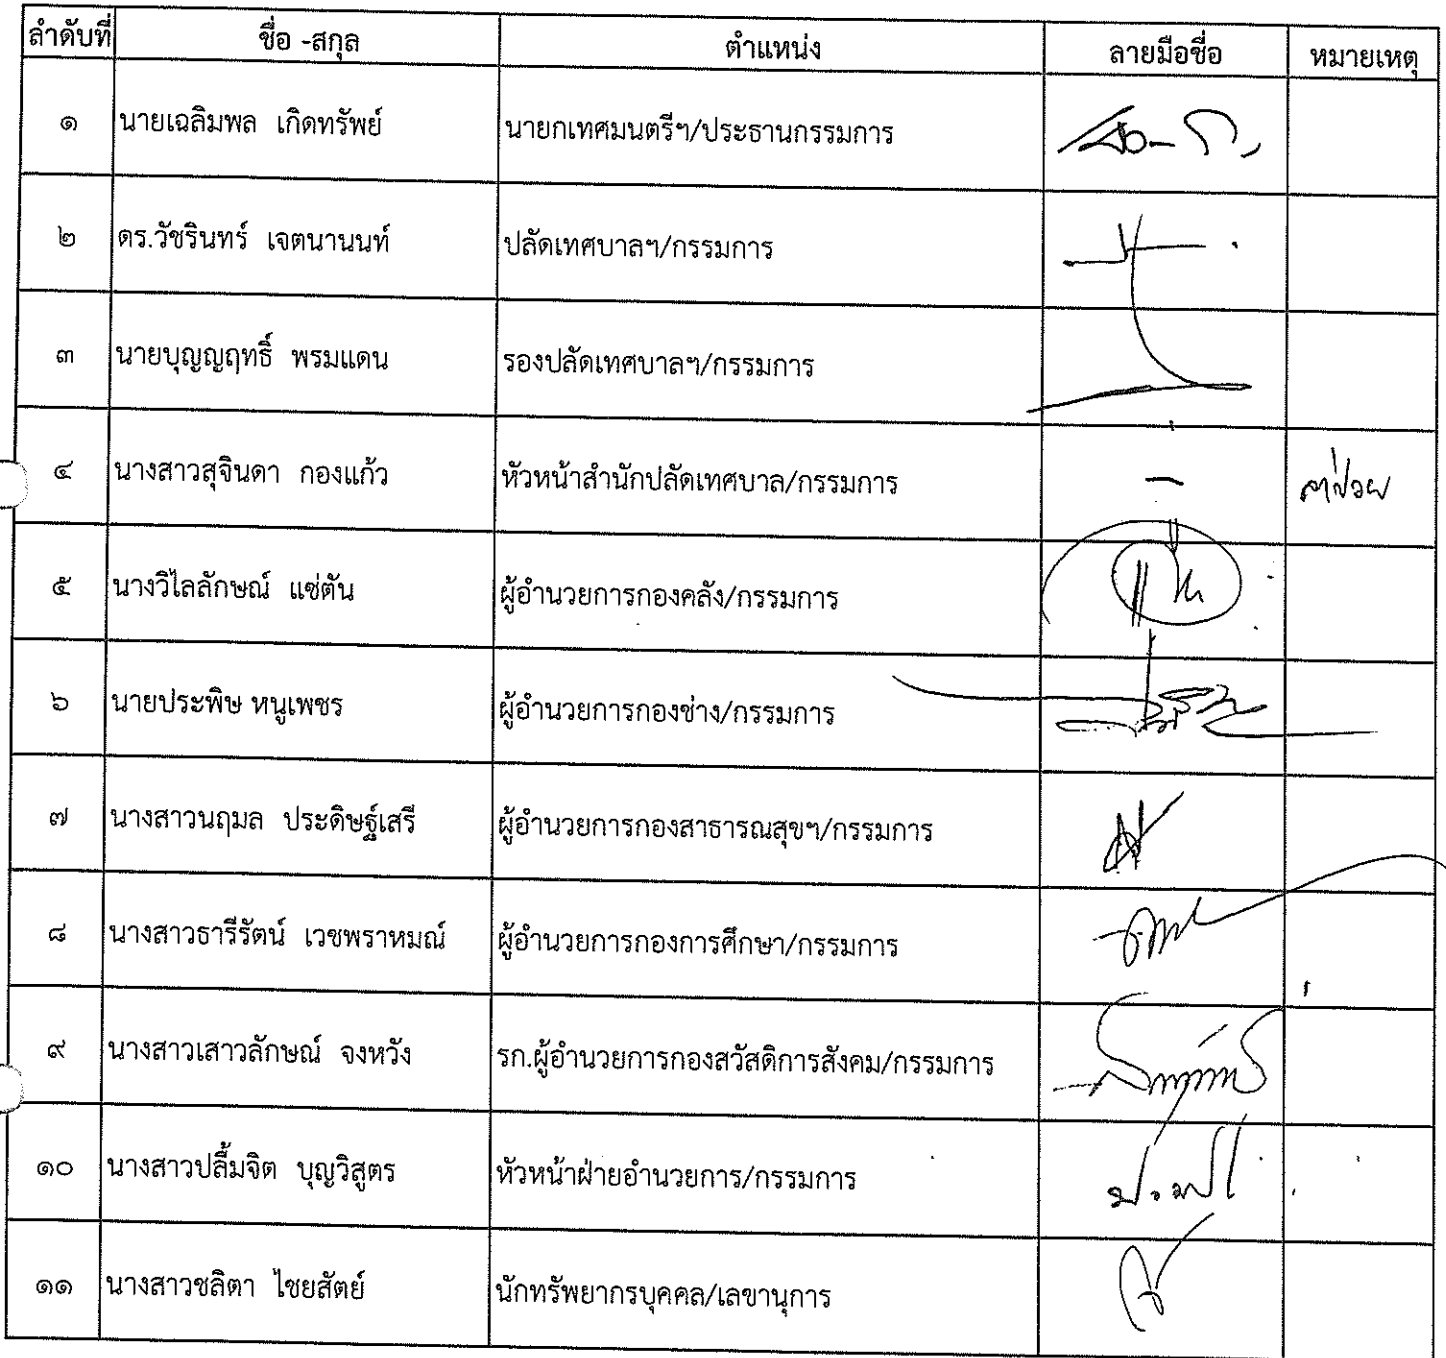 ลำดับที่ ชื่อ -สกุล ตำแหน่ง ลายมือชื่อ หมายเหตุ
๑ นายเฉลิมพล เกิดทรัพย์ นายกเทศมนตรีฯ/ประธานกรรมการ
๒ ดร.วัชรินทร์ เจตนานนท์ ปลัดเทศบาลฯ/กรรมการ
๓ นายบุญญฤทธิ์ พรมแดน รองปลัดเทศบาลฯ/กรรมการ
๔ นางสาวสุจินดา กองแก้ว หัวหน้าสำนักปลัดเทศบาล/กรรมการ - ลาป่วย
๕ นางวิไลลักษณ์ แซ่ตัน ผู้อำนวยการกองคลัง/กรรมการ
๖ นายประพิษ หนูเพชร ผู้อำนวยการกองช่าง/กรรมการ
๗ นางสาวนฤมล ประดิษฐ์เสรี ผู้อำนวยการกองสาธารณสุขฯ/กรรมการ
๘ นางสาวธารีรัตน์ เวชพราหมณ์ ผู้อำนวยการกองการศึกษา/กรรมการ
๙ นางสาวเสาวลักษณ์ จงหวัง รก.ผู้อำนวยการกองสวัสดิการสังคม/กรรมการ
๑๐ นางสาวปลื้มจิต บุญวิสูตร หัวหน้าฝ่ายอำนวยการ/กรรมการ
๑๑ นางสาวชลิตา ไชยสัตย์ นักทรัพยากรบุคคล/เลขานุการ